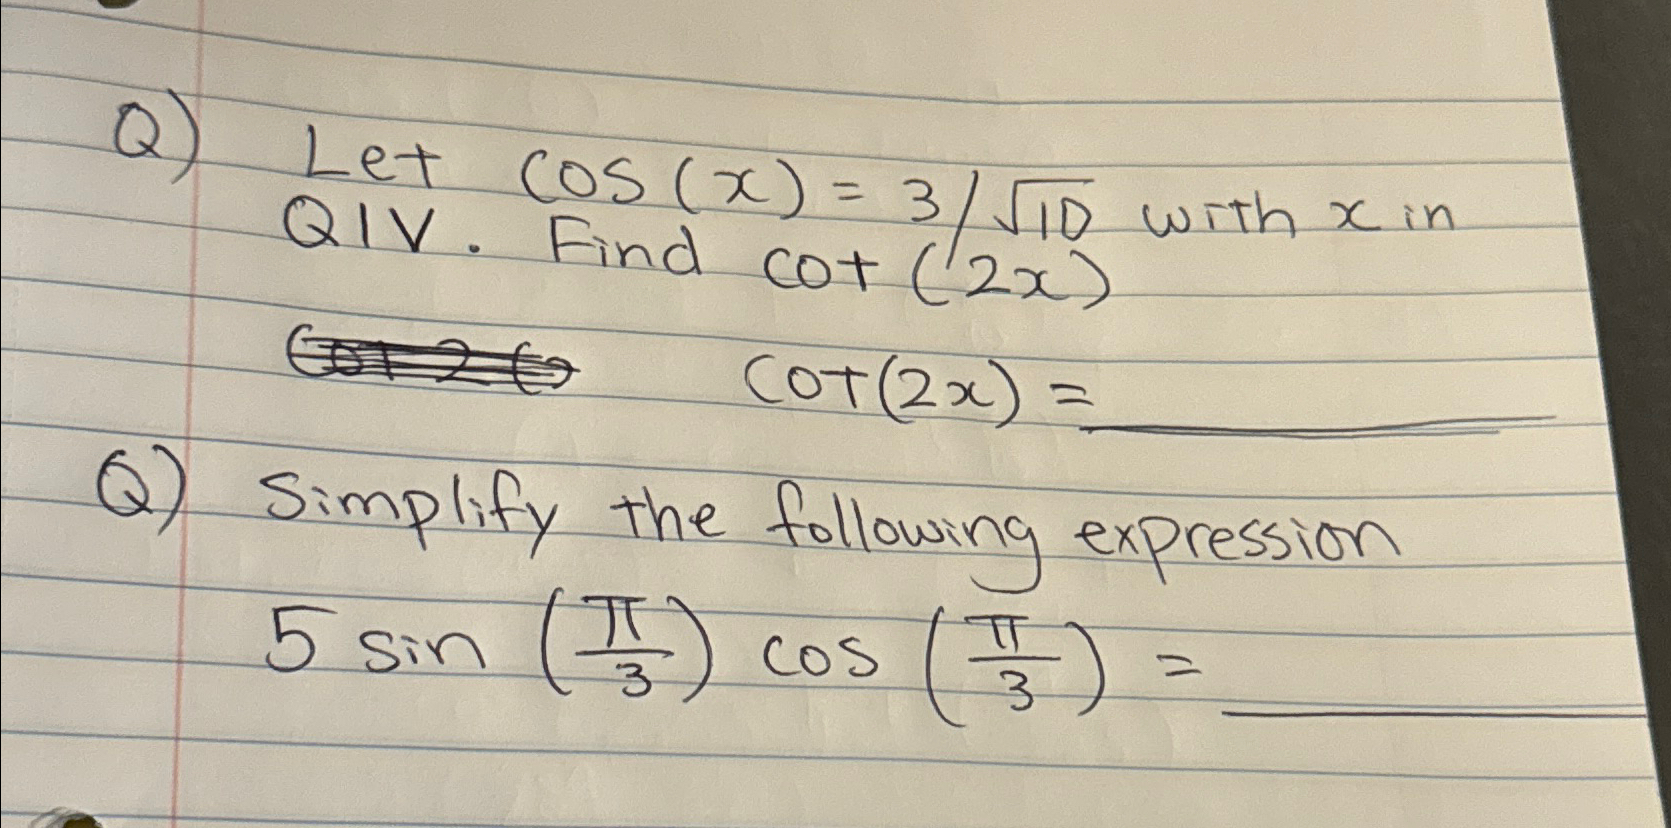 Q) Let cos(x) = 3/√10 with x in
QIV. Find cot(2x)
cot(2x) = ________
Q) Simplify the following expression
5 sin (π/3) cos (π/3) = ________